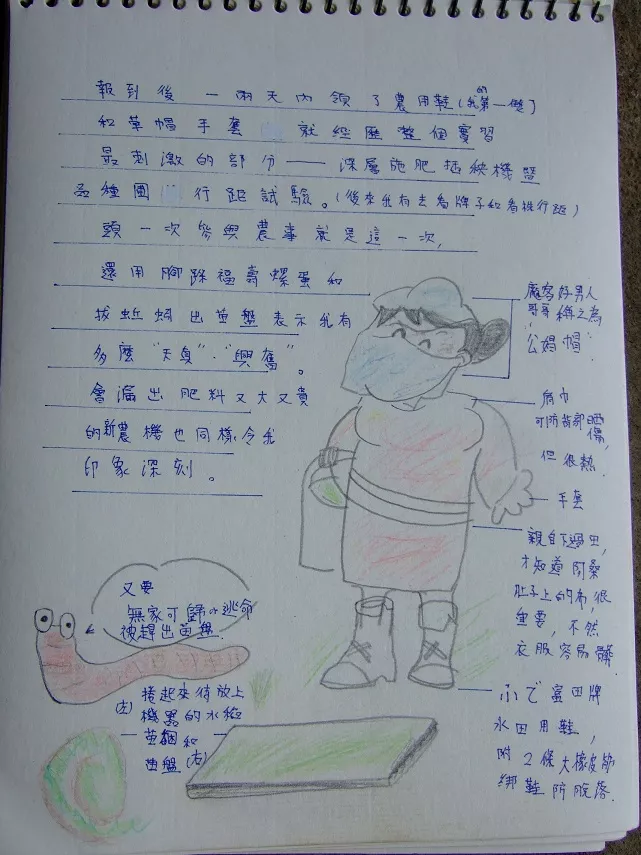 報到後一兩天內領了農用鞋(我的第一雙)
和草帽手套 就經歷整個實習
最刺激的部分——深層施肥插秧機暨
各種 行距試驗。(後來我有去看牌子和看株行距)
頭一次參與農事就是這一次,
還用腳踩福壽螺蛋和
拔蚯蚓出苗盤表示我有
多麼"天真"."興奮"。
會漏出肥料又大又貴
的新農機也同樣令我
印象深刻。
處
好男人
哥哥稱之為
"公娼帽"
肩巾
可防背部曬傷,
但很熱.
手套
親自下過田,
才知道阿桑
肚子上的布,很
重要,不然
衣服容易髒.
富田牌
水田用鞋,
附2條大橡皮筋
綁鞋防脫落.
又要
無家可歸の逃命
被趕出苗盤.
(左)捲起來待放上
機器的水稻
苗捆和
苗盤(右)